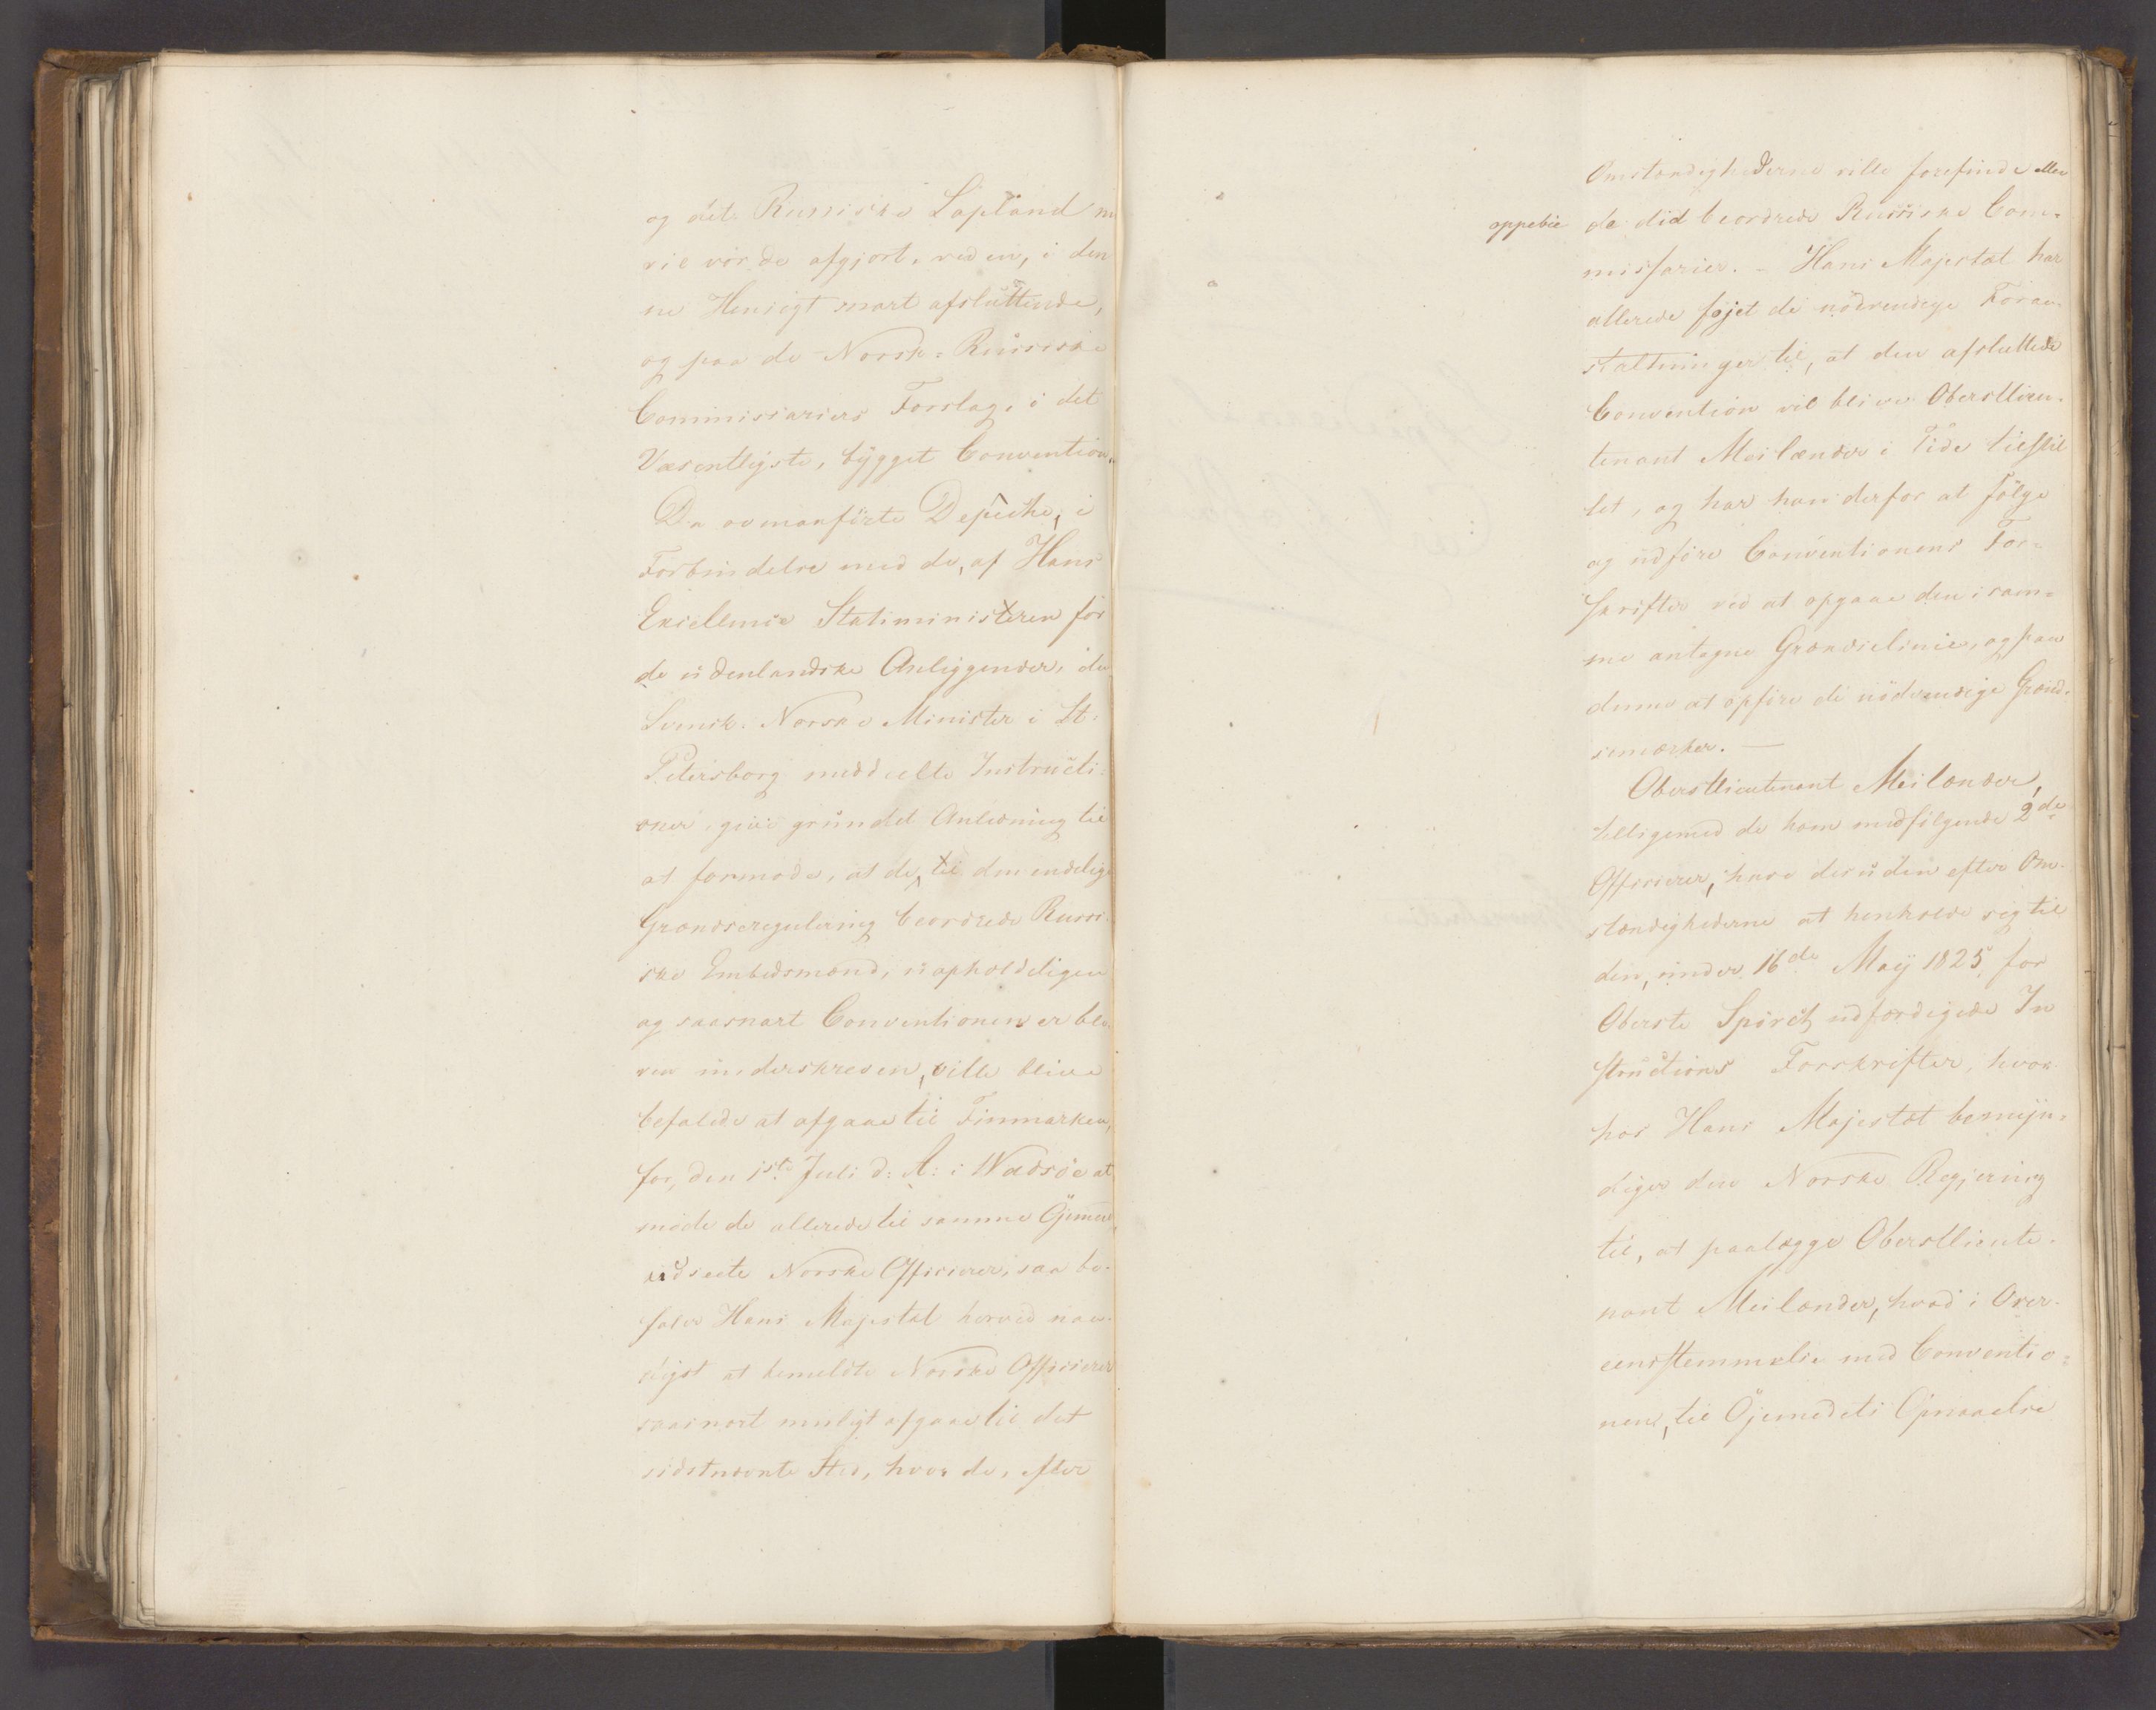 og det Russiske Lapland nu
vil vorde afgjort, ved en, i den
ne Hensigt snart afsluttende,
og paa de Norsk-Russiske
Commissariers Forslag, i det
Væsentligste, bygget Convention.
Da ovenanførte Depêche, i
Forbindelse med de, af Hans
Excellence Statsministeren for
de udenlandske Anliggender, den
Svensk-Norske Minister i St:
Petersborg meddeelte Instructi-
oner, give grundet Anledning til
at formode, at de, til den endelige
Grændseregulering beordrede Russi-
ske Embedsmænd, uopholdeligen
og saasnart Conventionen er ble-
ven underskreven, ville blive
befalede at afgaae til Finmarken,
for, den 1ste Juli d: A: i Wadsöe at
møde de allerede til samme Öjemed
udseete Norske Officierer, saa be-
faler Hans Majestæt herved naa-
digst at bemeldte Norske Officierer
saasnart muligt afgaae til det
sidstnævnte Sted, hvor de, efter
Omstændighederne ville forefinde eller
oppebie de did beordrede Russiske Com-
missarier. - Hans Majestæt har
allerede føjet de nödvendige Foran-
staltninger til, at den afsluttede
Convention vil blive Oberstlieu-
tenant Meilænder i Tide tilstil
let, og har han derfor at fölge
og udföre Conventionens For-
skrifter ved at opgaae den i sam-
me antagne Grændselinie, og paa
denne at opföre de nödvendige Grænd-
semærker. —
Oberstlieutenant Meilænder,
tilligemed de ham medfölgende 2de
Officierer, have desuden efter Om-
stændighederne at henholde sig til
den, under 16de Maij 1825 for
Oberste Spörck udfærdigede In
structions Forskrifter, hvor-
hos Hans Majestæt bemyn-
diger den Norske Regjering
til, at paalægge Oberstlieute-
nant Meilænder, hvad i Over-
eensstemmelse med Conventio-
nen, til Öjemedets Opnaaelse